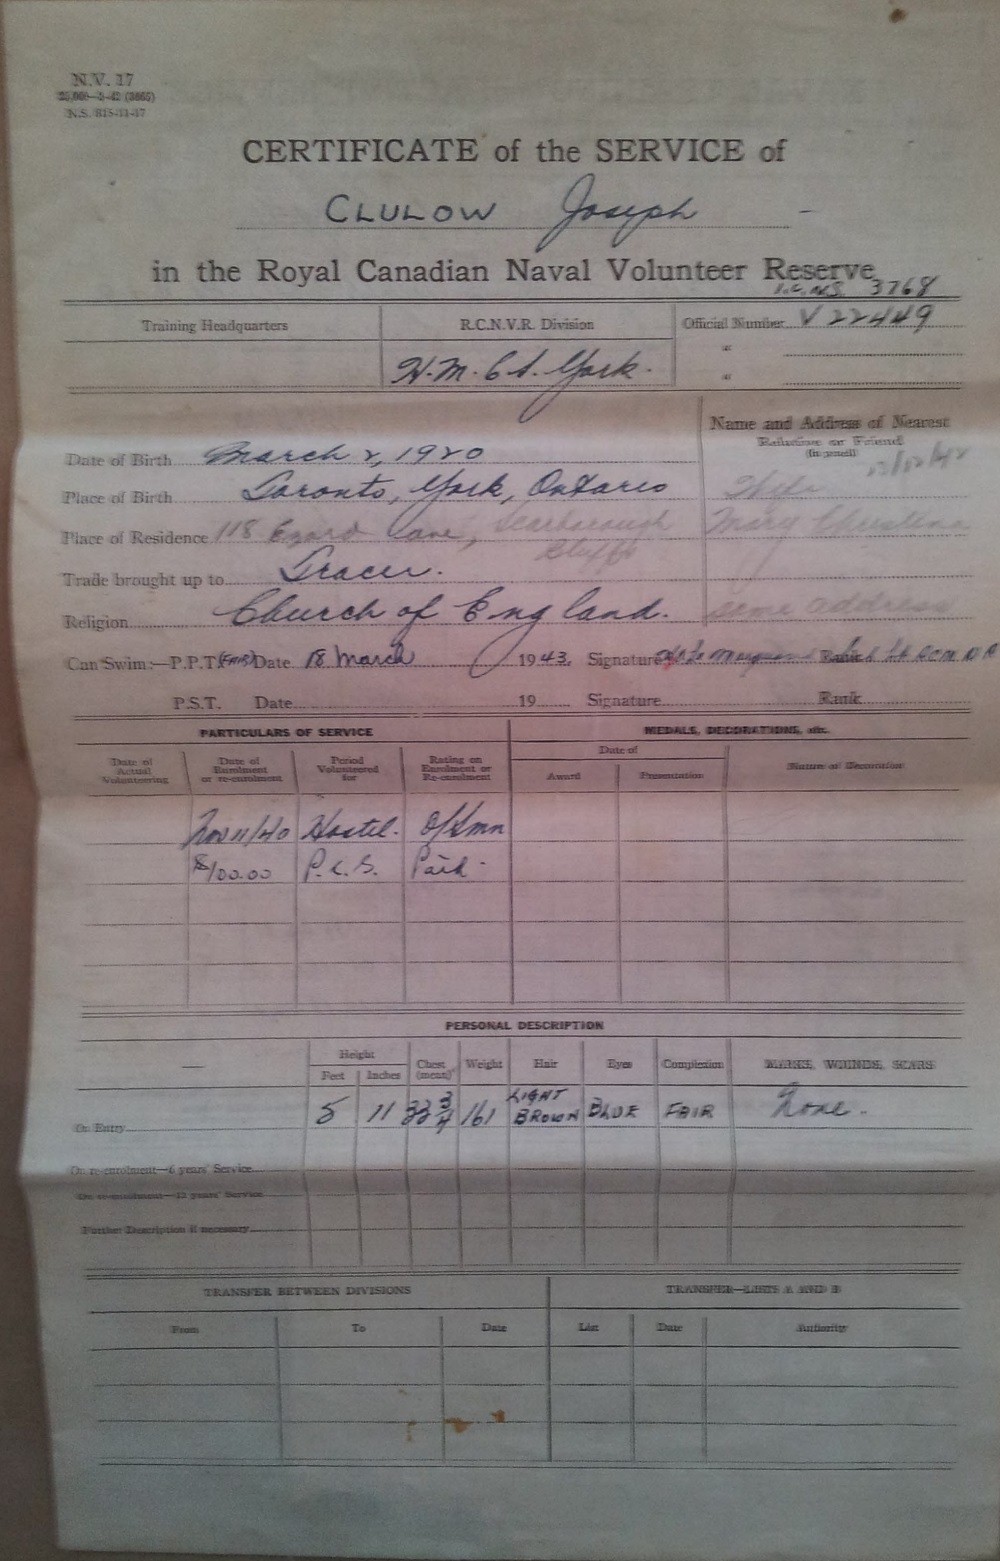 N.V. 17
25,000—2-42 (3865)
N.S. 815-11-17
CERTIFICATE of the SERVICE of
CLULOW Joseph
in the Royal Canadian Naval Volunteer Reserve
3768
Training Headquarters R.C.N.V.R. Division Official Number V 22449
"
H.M.C.S. York.
"
Name and Address of Nearest
Relative or Friend
(In pencil)
Date of Birth March 2, 1920
13/12/42
Place of Birth Toronto, York, Ontario Wife
Place of Residence 118 Lane, Scarborough Mary Christina
Bluffs
Trade brought up to Tracer.
Religion Church of England. same address
Can Swim:—P.P.T. Date 18 March 1943. Signature Rank
P.S.T. Date 19 Signature Rank
PARTICULARS OF SERVICE MEDALS, DECORATIONS, etc.
Date of Actual Volunteering Date of Enrolment or re-enrolment Period Volunteered for Rating on Enrolment or Re-enrolment Date of Award Presentation Nature of Decoration
Nov 11/40 Hostil. O/Smn
$100.00 Paid.
PERSONAL DESCRIPTION
— Height Feet Inches Chest (mean) Weight Hair Eyes Complexion MARKS, WOUNDS, SCARS
On Entry 5 11 33 3/4 161 LIGHT BROWN BLUE FAIR None.
On re-enrolment—6 years' Service
On re-enrolment—12 years' Service
Further Description if necessary
TRANSFER BETWEEN DIVISIONS TRANSFER—LISTS A AND B
From To Date List Date Authority